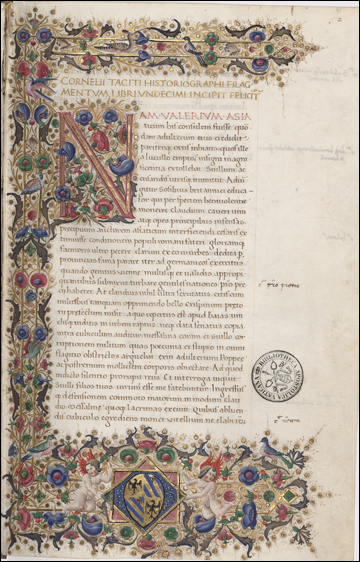 CORNELII TACITI HISTORIOGRAPHI FRAG
MENTVM LIBRI VNDECIMI INCIPIT FELICIT
NAM VALERIVM ASIA
ticum bis consulem fuisse quo
dam adulterum eius credidit
pariterque ortis inhians quos ille
a lucullo ceptos insigni magni
ficentia extollebat Suillium ac
cusandis utrisque immittit. Adiu
gitur Sosibius britannici educa
tor qui per speciem beniuolentie
moneret Claudium cauere uim
atque opes principibus infensas
precipuum auctorem asiaticum interficiendi cesaris
populi romani fateri gloriamque
facinoris ultro petere clarum ex eo in urbe
prouincias fama parare iter ad germanicos exercitus
quando genitus uienne multisque et ualidis propin
quitatibus subnixus turbare gentiles nationes
At claudius nihil ultra scrutatus citis cum
militibus tanquam opprimendo bello Crispinum preto
rii prefectum misit a quo repertus est apud baias uin
clisque inditis in urbem raptus neque data senatus copia
intra cubiculum auditur messalina coram et suillio cor
ruptionem militum quos pecunia et stupro in omne
flagitium obstrictos arguebat exin adulterium Poppee
ac postremum mollitiem corporis obiectante Ad quod
uicto silentio prorupit reus Et interroga inquit
Suilli filios tuos uirum esse me fatebuntur Ingressusque
defensionem commoto maiorem in modum clau
dio messaline quoque lacrimas exciuit Quibus abluen
dis cubiculo egrediens monet uitellium ne elabi reum
BIBLIOTHECA APOSTOLICA VATICANA